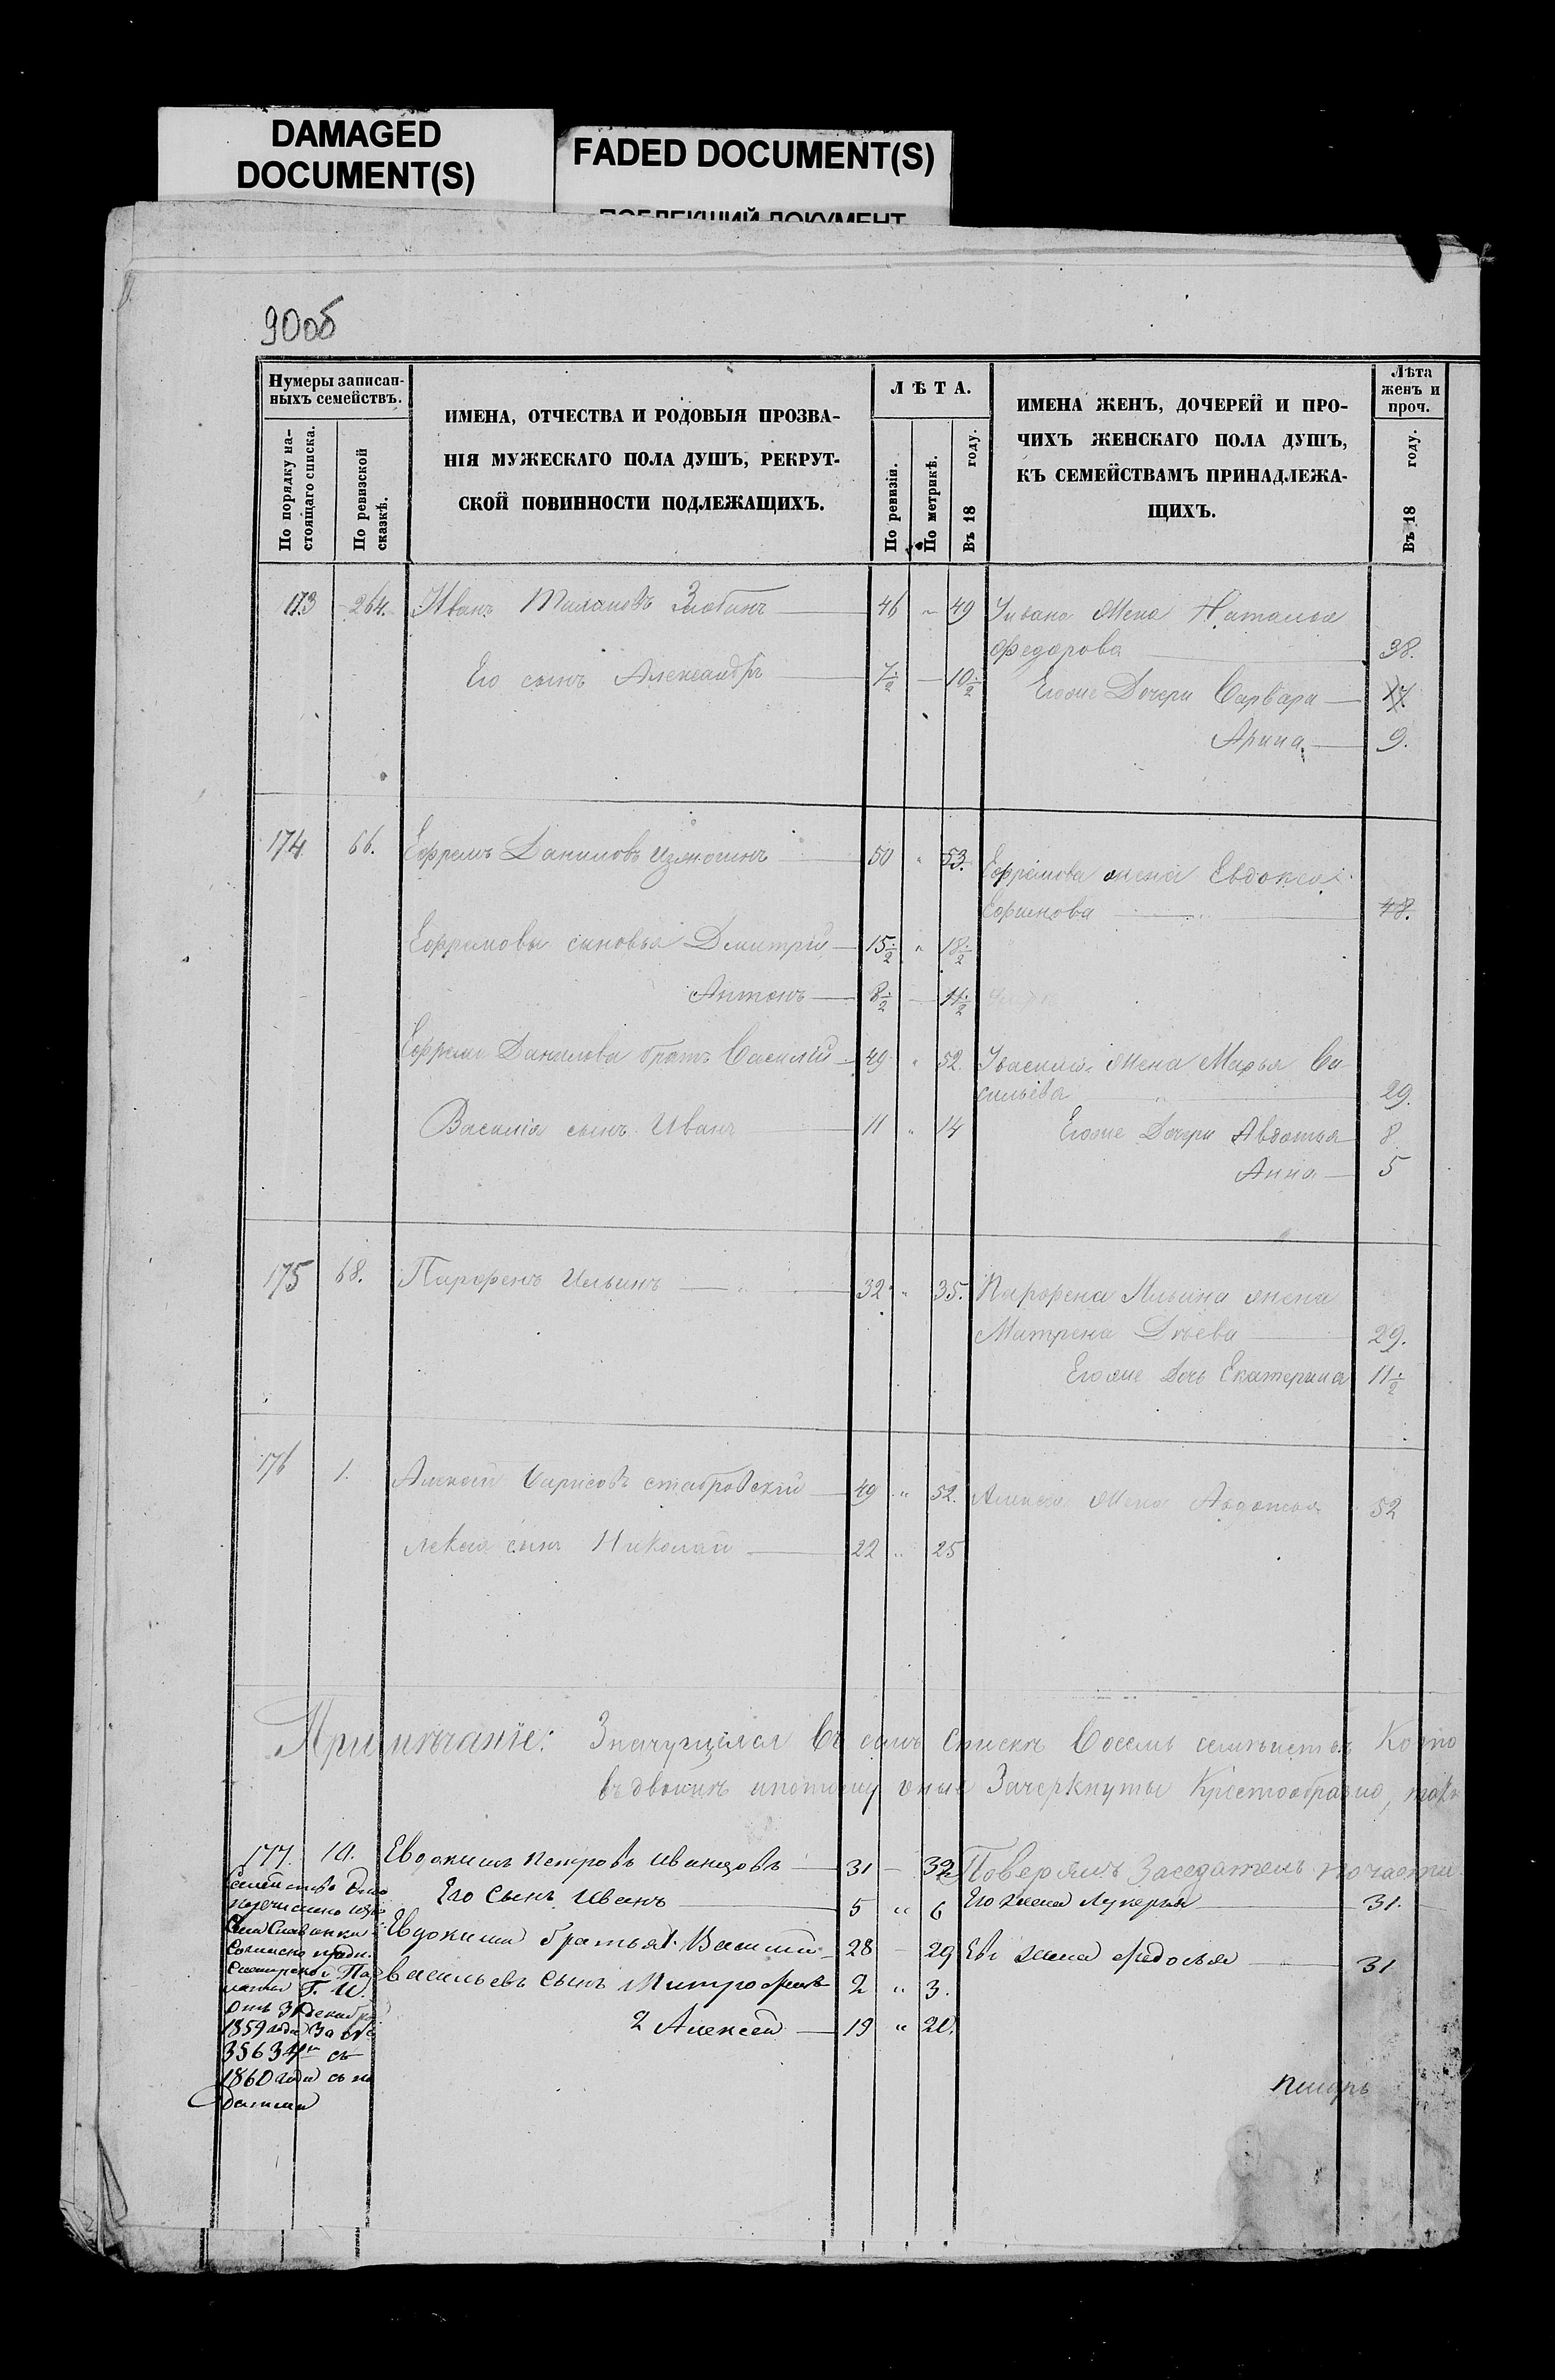 DAMAGED
DOCUMENT(S)
FADED DOCUMENT(S)
ПОБЛЕКШИЙ ДОКУМЕНТ
90об
Нумеры записан-
ныхъ семействъ.
По порядку на-
стоящаго списка.
По ревизской
сказкѣ.
ИМЕНА, ОТЧЕСТВА И РОДОВЫЯ ПРОЗВА-
НІЯ МУЖЕСКАГО ПОЛА ДУШЪ, РЕКРУТ-
СКОЙ ПОВИННОСТИ ПОДЛЕЖАЩИХЪ.
ЛѢТА.
По ревизіи.
По метрикѣ.
Въ 18 году.
ИМЕНА ЖЕНЪ, ДОЧЕРЕЙ И ПРО-
ЧИХЪ ЖЕНСКАГО ПОЛА ДУШЪ,
КЪ СЕМЕЙСТВАМЪ ПРИНАДЛЕЖА-
ЩИХЪ.
Лѣта
женъ и
проч.
Въ 18 году.
173 264. Иванъ Злобинъ 46 49 Ивана жена Наталья
Федорова 38.
Его сынъ Александръ 7½ 10½ Егоже Дочери Варвара 17
Арина 9.
174 66. Ефремъ Даниловъ 50 " 53. Ефремова жена Евдокея
Ефимова 48.
Ефремовы сыновья Дмитрій 15½ " 18½
Антонъ 8½ 11½
Ефрема Данилова братъ Василій 49 " 52. Василія жена Марья Ва-
сильева 29.
Василія сынъ Иванъ 11 " 14 Егоже Дочери Авдотья 8
Анна 5
175 68. Парфенъ Ильинъ 32 " 35. Парфена Ильина жена
Матрена 29.
Егоже Дочь Екатерина 11½
176 1. Алексей 49 " 52. Алексея жена Авдотья 52
сынъ Николай 22 " 25
Примѣчаніе: Значущіяся въ семъ списке Восемь семействъ
въ двойне и потому оные Зачеркнуты Крестообразно,
177. 10. Евдокимъ Петровъ Иванцовъ 31 32 Поверялъ Заседатель по части
Его Сынъ Иванъ 5 " 6 Его жена Лукерья 31.
Евдокима братья 1. Василій 28 29 Ево жена Федосья 31
Васильевъ Сынъ Митрофанъ 2 " 3.
2 Алексей 19 " 20.
Семейство
перечислено
Села
Палаты Г. И.
отъ 31 декабря
1859 года За №
35634 съ
1860 года
писарь